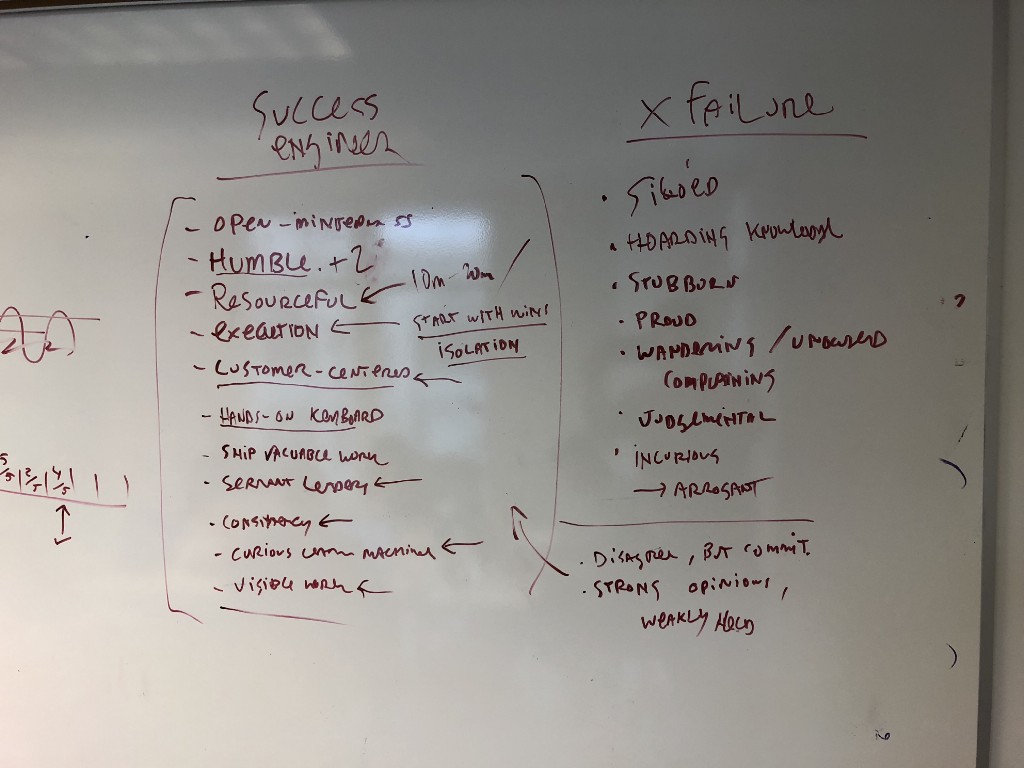 Success
engineer
- OPEN-MINDEDNESS
- HUMBLE. +2
- RESOURCEFUL
10m - 20m
- EXECUTION
START WITH WINS
ISOLATION
- CUSTOMER-CENTERED
- HANDS-ON KEYBOARD
- SHIP VALUABLE WORK
- SERVANT LEADERS
- CONSISTENCY
- CURIOUS LEARN MACHINES
- VISIBLE WORK
X FAILURE
• SILOED
• HOARDING KNOWLEDGE
• STUBBORN
• PROUD
• WANDERING / UNFOCUSED
COMPLAINING
• JUDGEMENTAL
• INCURIOUS
→ ARROGANT
• DISAGREE, BUT COMMIT.
• STRONG OPINIONS,
WEAKLY HELD